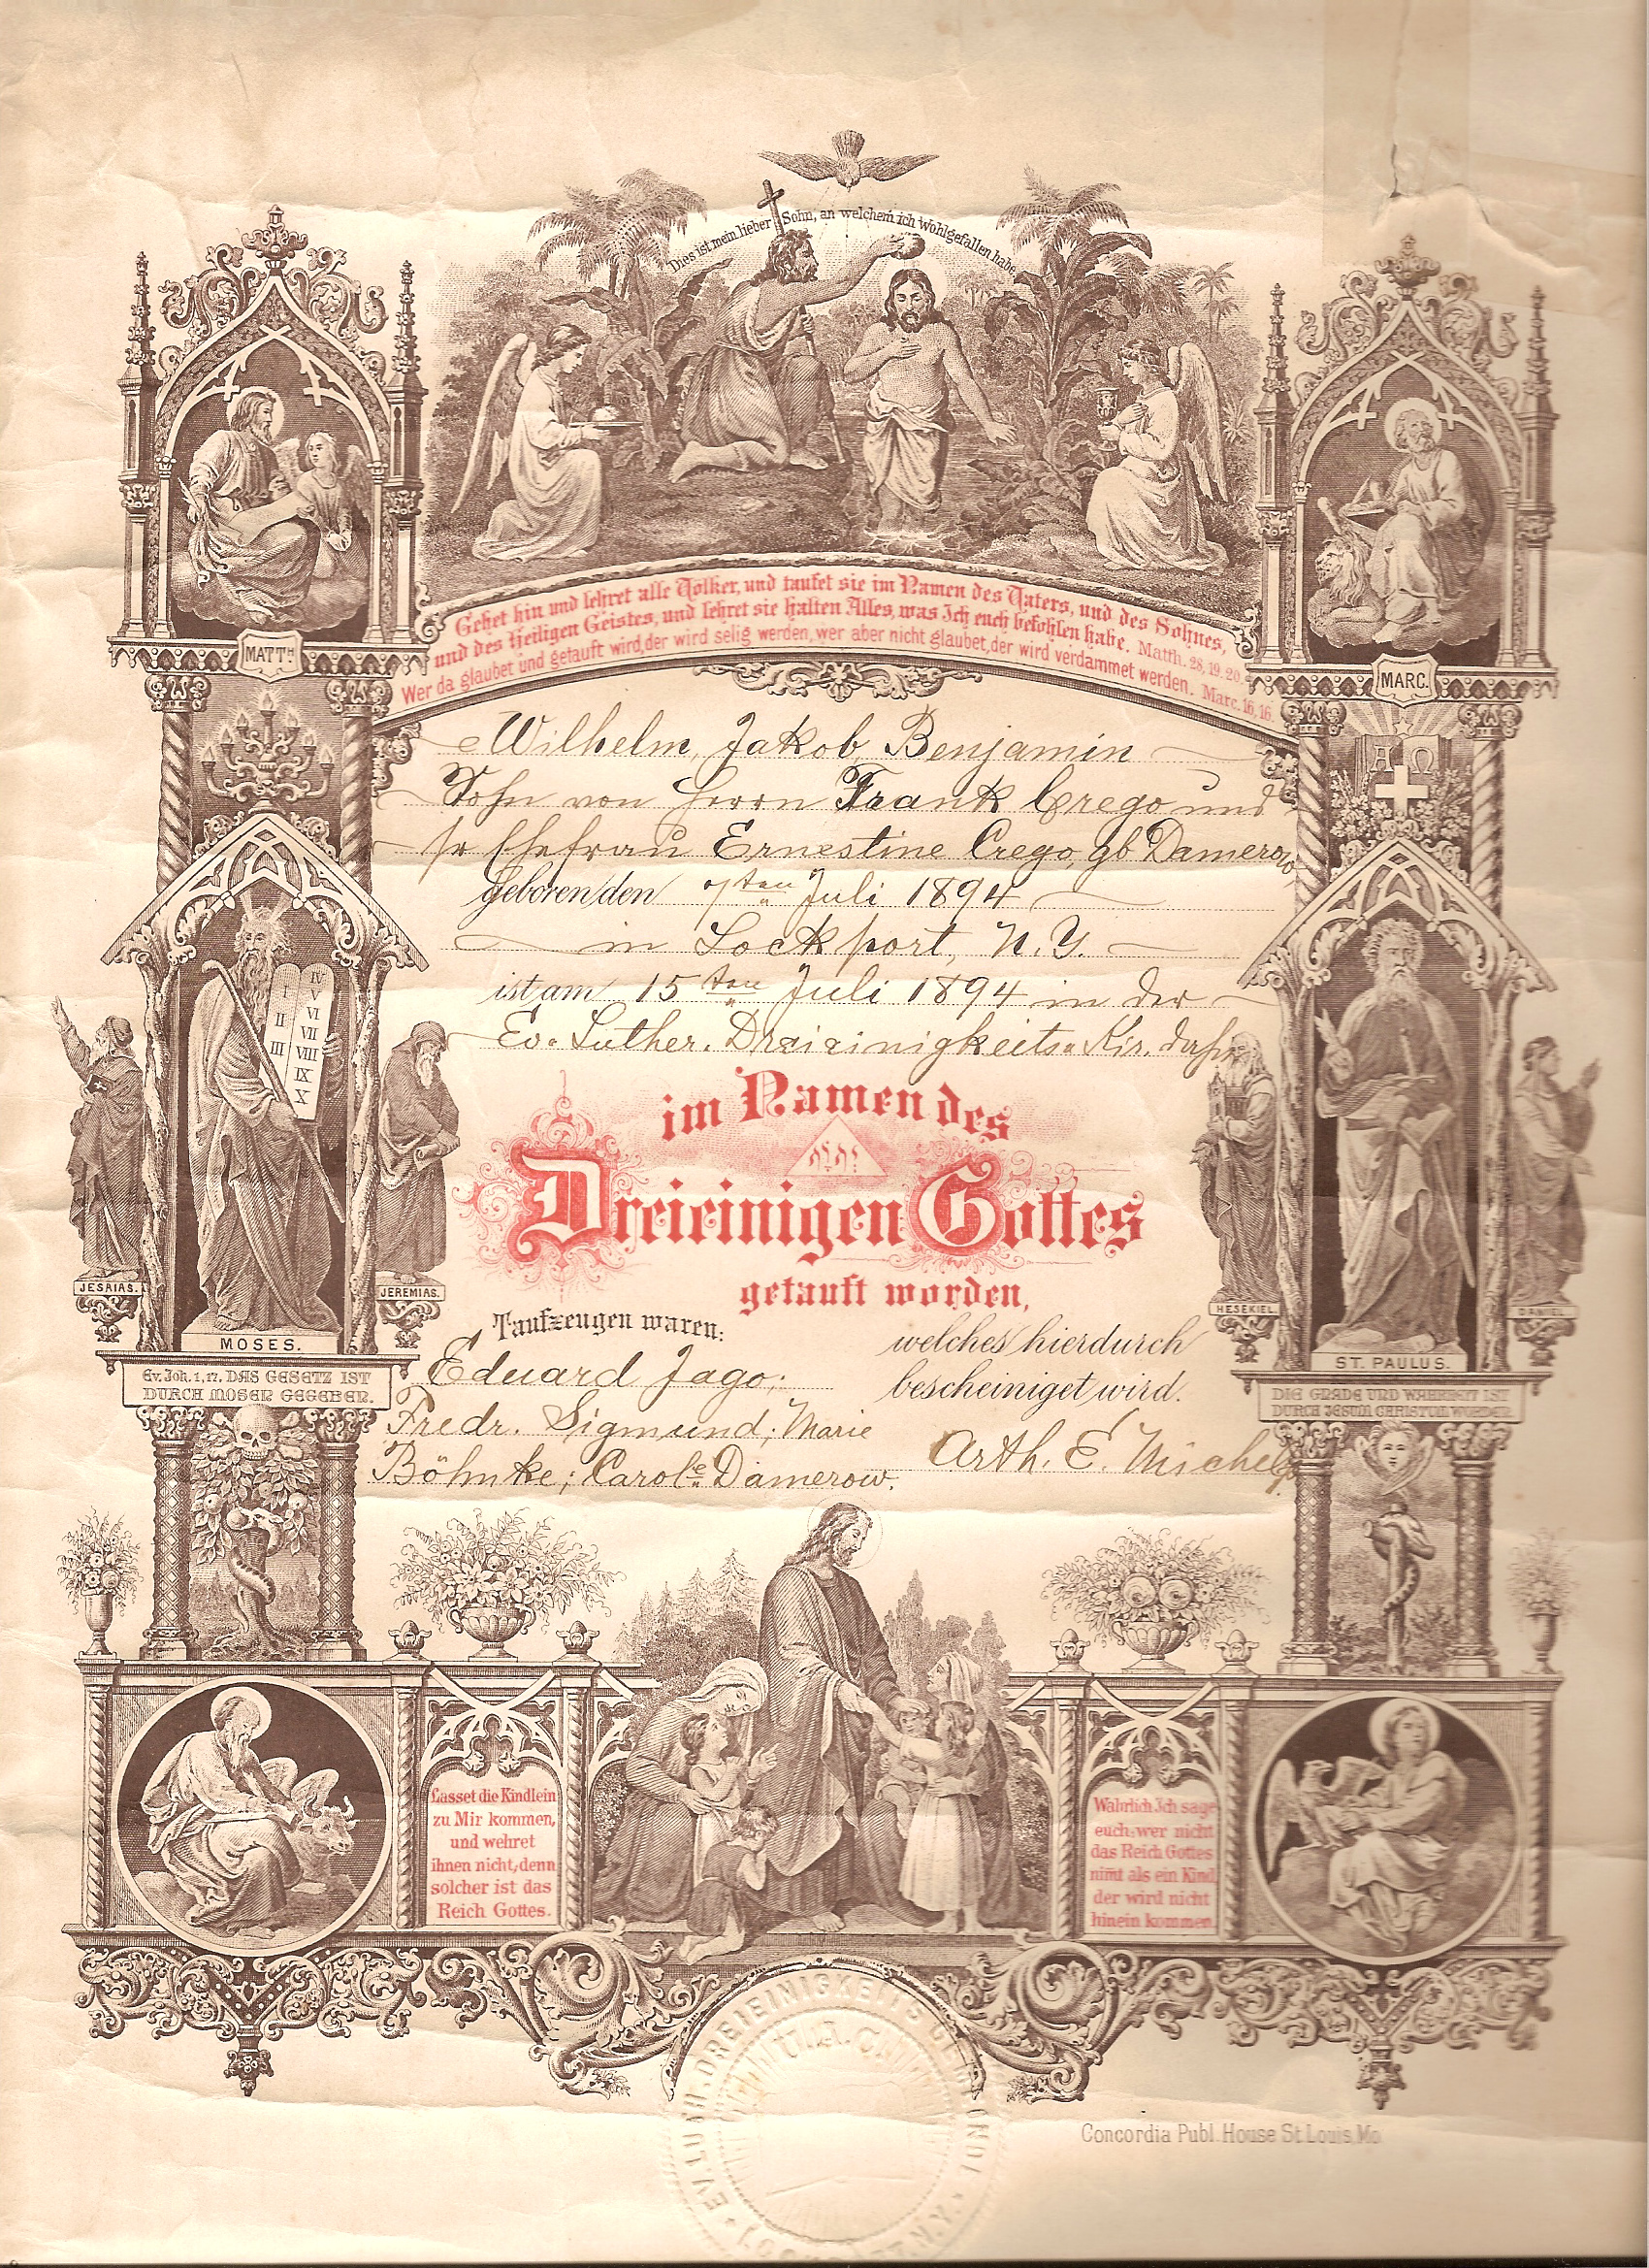 Dies ist mein lieber Sohn, an welchem ich Wohlgefallen habe.
Gehet hin und lehret alle Völker, und taufet sie im Namen des Vaters, und des Sohnes,
und des Heiligen Geistes, und lehret sie halten Alles, was Ich euch befohlen habe. Matth. 28, 19. 20.
Wer da glaubet und getauft wird, der wird selig werden, wer aber nicht glaubet, der wird verdammet werden. Marc. 16, 16.
MATTH
MARC.
Wilhelm, Jakob, Benjamin
Sohn von Herrn Frank Crego und
sr Ehefrau Ernestine Crego, gb Damerow
geboren den 7ten Juli 1894
in Lockport, N.Y.
ist am 15ten Juli 1894 in der
Ev. Luther. Dreieinigkeits Kir.
ΑΩ
I II III IV V VI VII VIII IX X
im Namen des
Dreieinigen Gottes
getauft worden,
JESAIAS.
JEREMIAS.
HESEKIEL.
DANIEL.
MOSES.
ST. PAULUS.
Ev. Joh. 1, 17. DAS GESETZ IST
DURCH MOSEN GEGEBEN.
DIE GNADE UND WAHRHEIT IST
DURCH JESUM CHRISTUM WORDEN.
Taufzeugen waren:
Eduard Jago;
Fredr. Sigmund; Marie
Böhnke; Carole Damerow.
welches hierdurch
bescheiniget wird.
Arth. E. Michel
Lasset die Kindlein
zu Mir kommen,
und wehret
ihnen nicht, denn
solcher ist das
Reich Gottes.
Wahrlich Ich sage
euch: wer nicht
das Reich Gottes
nimt als ein Kind,
der wird nicht
hinein kommen.
EV. LUTH. DREIEINIGKEITS GEMEINDE
U.A.C.
LOCKPORT, N.Y.
Concordia Publ. House St. Louis, Mo.